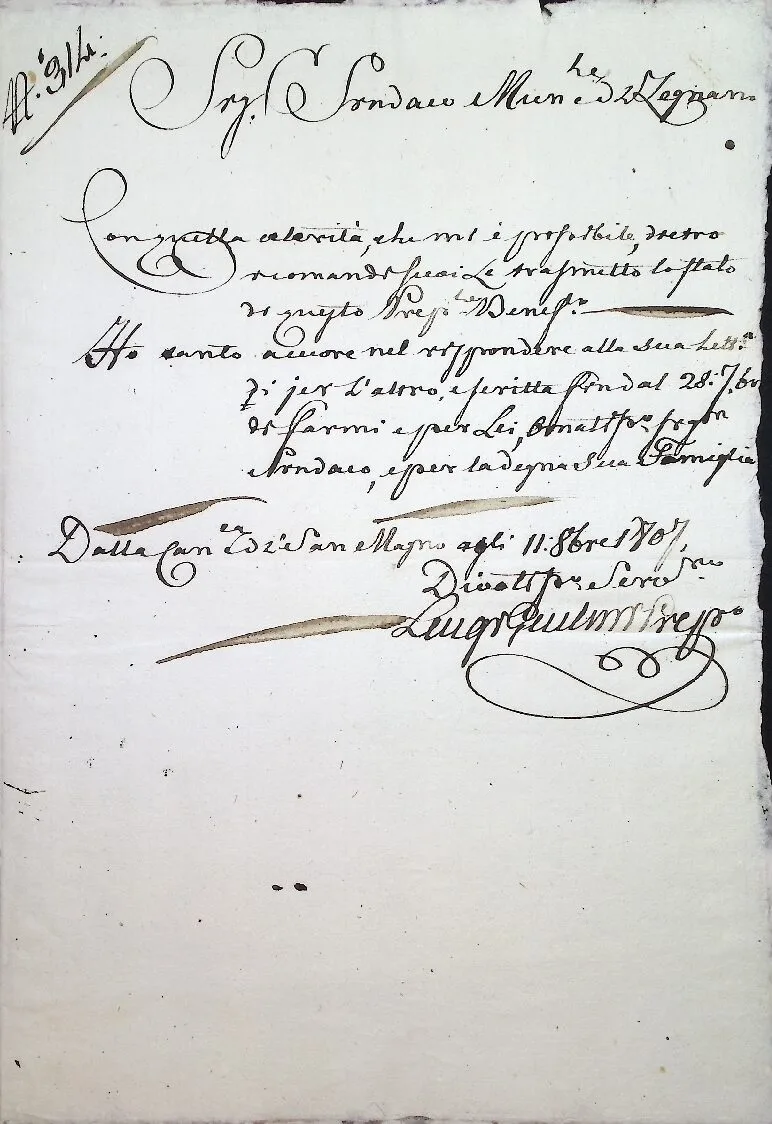 N.° 314:
Sig.r Sindaco Mun.le di Legnano
Con quella celerità, che mi è possibile, dietro
ricomandi suoi Le trasmetto lo stato
di questo Prep.le Benef.o
Ho tanto a cuore nel rispondere alla sua Lett.a
di jer l'altro, e scritta fin dal 28: 7.bre
di farmi e per Lei, Onatiss.mo sig.r
Sindaco, e per la degna sua Famiglia
Dalla Can.ca di S. San Magno agli 11: 8bre 1807,
Divotiss.mo Serv.re
Luigi Prep.o